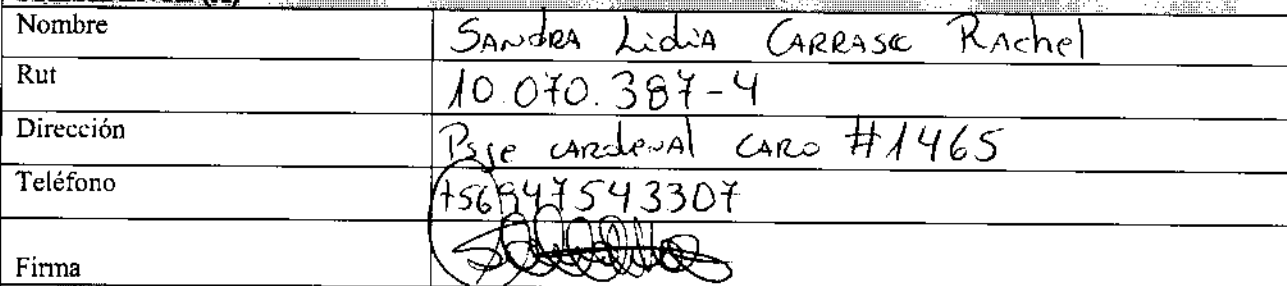 Nombre SANDRA LidiA CARRASC RAchel
Rut 10.070.387-4
Dirección Psje CARdenAl CARo #1465
Teléfono +56947543307
Firma